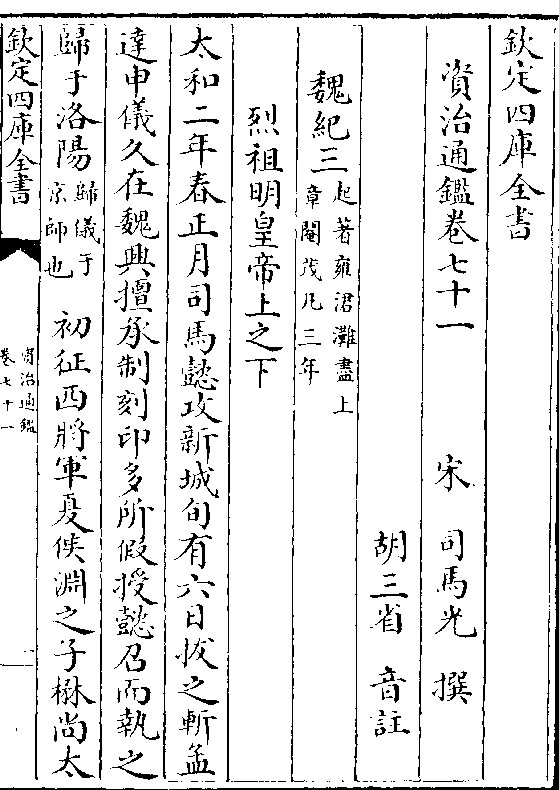 欽定四庫全書
資治通鑑卷七十一
宋 司馬光 撰
胡三省 音註
魏紀三 起著雍涒灘盡上章閹茂凡三年
烈祖明皇帝上之下
太和二年春正月司馬懿攻新城旬有六日拔之斬孟
達申儀久在魏興擅承制刻印多所假授懿召而執之
歸于洛陽 歸儀于京師也 初征西將軍夏侯淵之子楙尚太
欽定四庫全書
資治通鑑
卷七十一
一